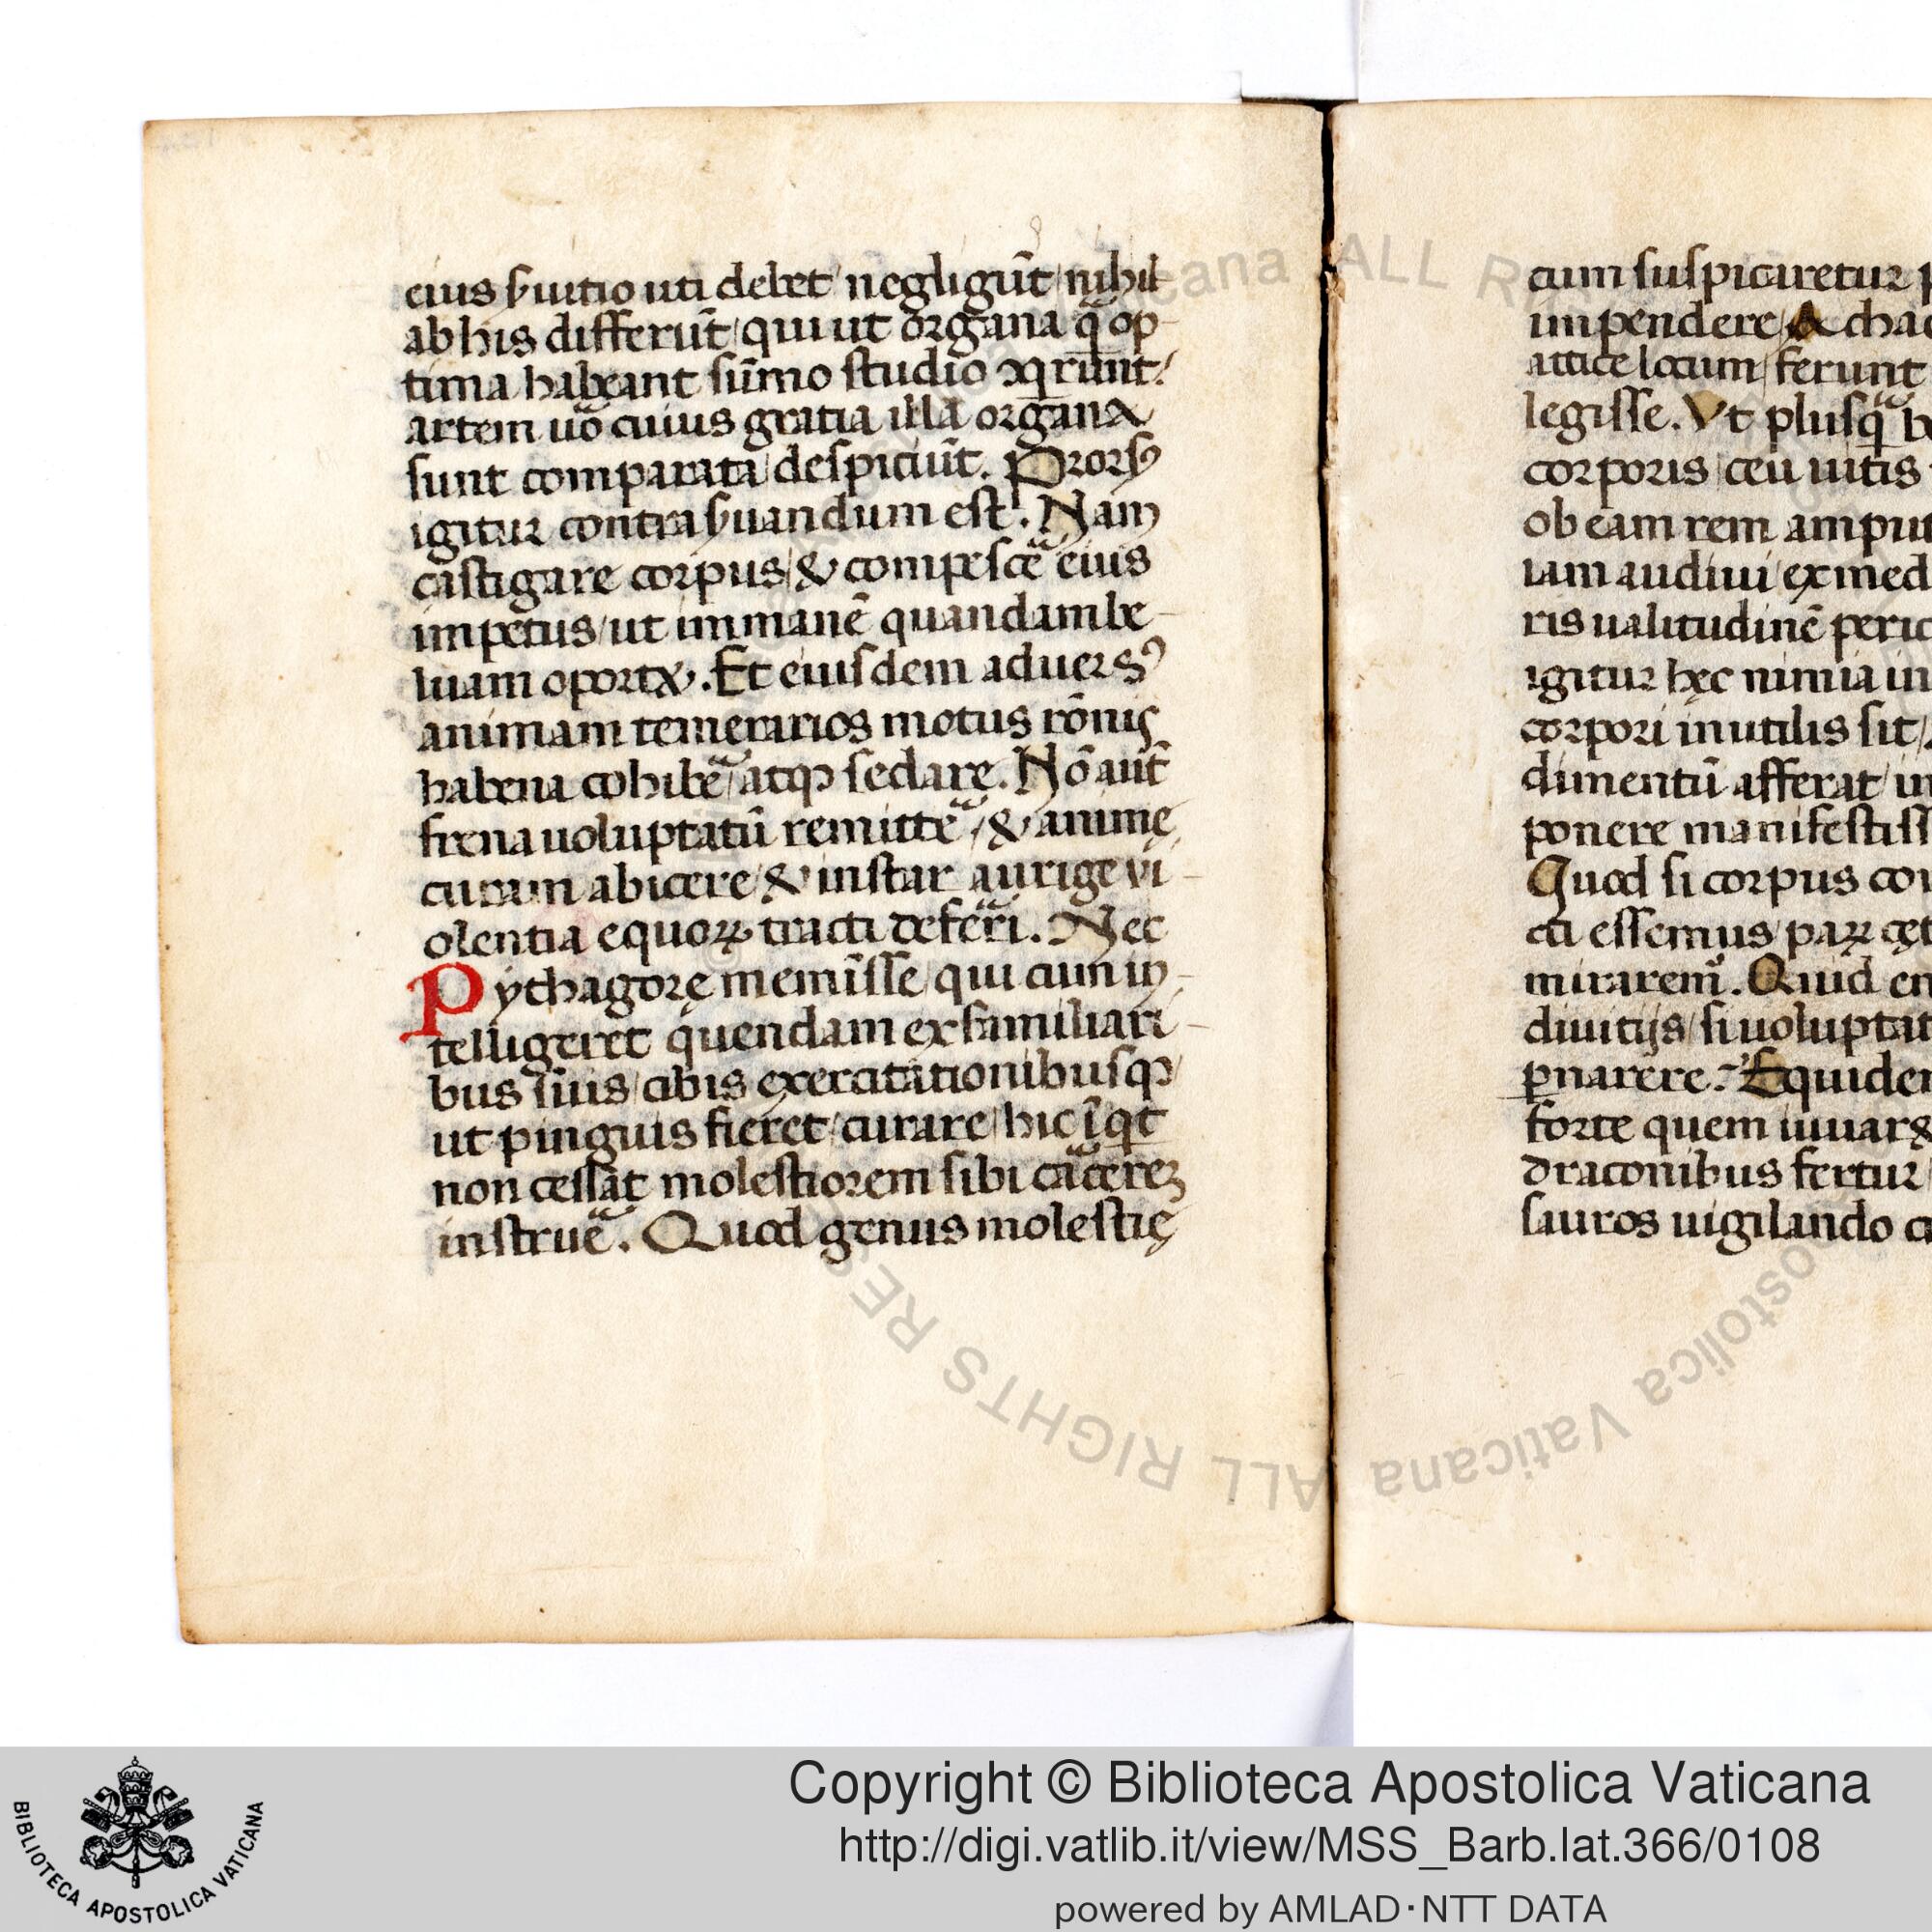 eius ſuitio uti debet negligūt nihil
ab his differūt qui ut organa q̃ op
tima habeant sūmo studio xqrunt
artem uo cuius gratia illa organa
sunt comparata despiciūt. Prorsꝰ
igitur contra ſuandum est. Nam
castigare corpus & compescē eius
impetus ut immanē quandam be
luam oportꝫ. Et eiusdem aduersꝰ
animam temerarios motus rōnis
habena cohibē atqꝫ sedare. Nō aūt
frena uoluptatū remittē & animę
curam abicere & instar aurige vi
olentia equoꝝ tracti deferi. Nec
Pythagorę meminīsse qui cum in
telligeret quendam ex familiari
bus suis cibis exercitationibusqꝫ
ut pinguis fieret curare hic īqt
non cessat molestiorem sibi cācerē
instruē. Quod genus molestię
cum suspicaretur p
impendere Acha
attice locum ferunt
legisse. Vt plusq̃ b
corporis ceu uitis
ob eam rem ampu
iam audiui ex med
ris ualitudinē peric
igitur hęc nimia in
corpori inutilis sit
dimentū afferat in
ponere manifestiss
Quod si corpus con
cti essemus paꝝ cęt
mirarem̃. Quid en
diuitijs si uoluptat
pnarēre. Equidem
forte quem iuuarꝫ
draconibus fertur
sauros uigilando c
Copyright © Biblioteca Apostolica Vaticana
http://digi.vatlib.it/view/MSS_Barb.lat.366/0108
powered by AMLAD·NTT DATA
BIBLIOTECA APOSTOLICA VATICANA